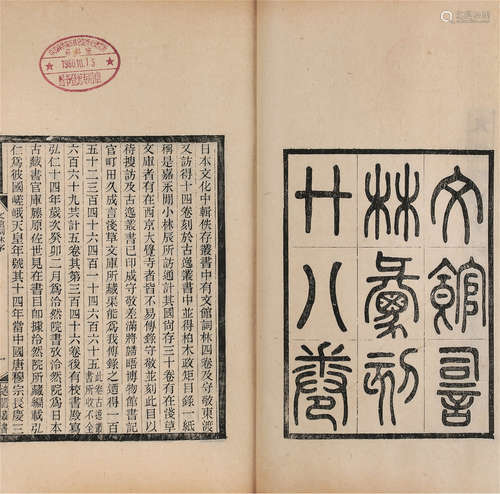 文館詞
林彙刻
廿八卷
日本文化中輯佚存叢書中有文館詞林四卷及守敬東渡
又訪得十四卷刻於古逸叢書中並得柏木政矩目錄一紙
稱是嘉永間小林辰所訪通計其國尚存三十卷有在淺草
文庫者有在西京大覺寺者皆不易傳錄守敬並刻此目以
待搜訪及古逸叢書已印成守敬差滿將歸晤博物館書記
官町田久成言淺草文庫所藏渠能爲我傳錄之適得一百
五十二三百四十六四百一十四六百六十五此卷古逸叢書所收不全
六百六十九共計五卷其第三百四十六卷後有校書殿寫
弘仁十四年歲次癸卯二月爲冷然院書攷冷然院爲日本
古藏書官庫藤原佐世見在書目卽據冷然院所藏編載弘
仁爲彼國嵯峨天皇年號其十四年當中國唐穆宗長慶三
1960.10.15